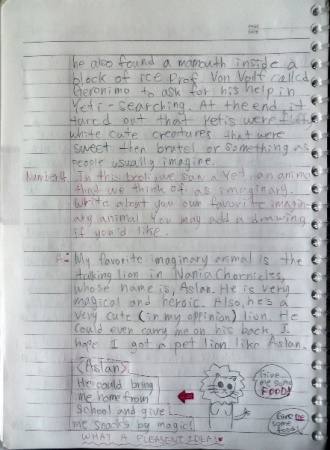 he also found a mamouth inside a
block of ice Prof. Von Volt called
Geronimo to ask for his help in
Yeti-searching. At the end, it
tured out that Yetis were
white cute creatures that were
sweet then brutel or something as
people usually imagine.
Number4 In this book we saw a Yeti, an animal
that we think of as imaginary.
Write about you own favorite imagin-
ary animal. You may add a drawing
if you'd like.
A: My favorite imaginary animal is the
talking lion in Nania Chornicles,
whose name is, Aslan. He is very
magical and heroic. Also, he's a
very cute (in my oppinion) lion. He
could even carry me on his back. I
hope I got a pet lion like Aslan.
<Aslan>
He could bring
me home from
school and give
me snacks by magic!
WHAT A PLEASENT IDEA!
Give
me some
FOOD!
Give me
some
food!